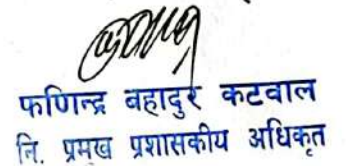 फणिन्द्र बहादुर कटवाल
नि. प्रमुख प्रशासकीय अधिकृत